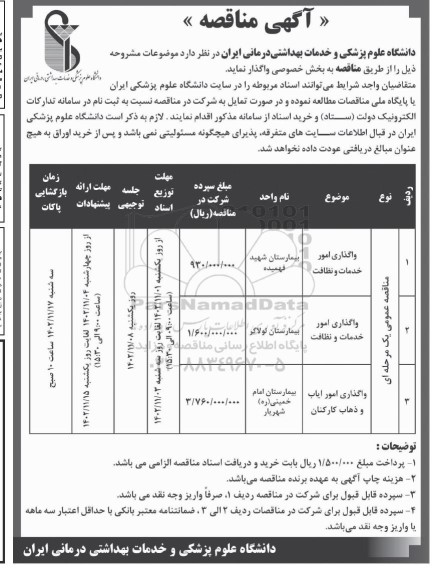 « آگهی مناقصه »
دانشگاه علوم پزشکی و خدمات بهداشتی درمانی ایران
دانشگاه علوم پزشکی و خدمات بهداشتی‌درمانی ایران در نظر دارد موضوعات مشروحه
ذیل را از طریق مناقصه به بخش خصوصی واگذار نماید.
متقاضیان واجد شرایط می‌توانند اسناد مربوطه را در سایت دانشگاه علوم پزشکی ایران
یا پایگاه ملی مناقصات مطالعه نموده و در صورت تمایل به شرکت در مناقصه نسبت به ثبت نام در سامانه تدارکات
الکترونیک دولت (ستاد) و خرید اسناد از سامانه مذکور اقدام نمایند . لازم به ذکر است دانشگاه علوم پزشکی
ایران در قبال اطلاعات سایت های متفرقه، پذیرای هیچگونه مسئولیتی نمی باشد و پس از خرید اوراق به هیچ
عنوان مبالغ دریافتی عودت داده نخواهد شد.
ردیف نوع موضوع نام واحد مبلغ سپرده شرکت در مناقصه(ریال) مهلت توزیع اسناد جلسه توجیهی مهلت ارائه پیشنهادات زمان بازگشایی پاکات
مناقصه عمومی یک مرحله ای
۱ واگذاری امور خدمات و نظافت بیمارستان شهید فهمیده ۹۳۰/۰۰۰/۰۰۰
۲ واگذاری امور خدمات و نظافت بیمارستان لولاگر ۱/۶۰۰/۰۰۰/۰۰۰
۳ واگذاری امور ایاب و ذهاب کارکنان بیمارستان امام خمینی(ره) شهریار ۳/۷۶۰/۰۰۰/۰۰۰
از روز یکشنبه ۱۴۰۲/۱۱/۰۱ لغایت روز سه شنبه ۱۴۰۲/۱۱/۰۳ (ساعت ۹:۰۰ الی ۱۵:۳۰)
روز یکشنبه ۱۴۰۲/۱۱/۰۸
از روز چهارشنبه ۱۴۰۲/۱۱/۰۴ لغایت روز یکشنبه ۱۴۰۲/۱۱/۱۵ (ساعت ۹:۰۰ الی ۱۵:۳۰)
سه شنبه ۱۴۰۲/۱۱/۱۷ ساعت ۱۰ صبح
ParsNamadData
پایگاه اطلاع رسانی مناقصه
۰۲۱-۸۸۳۴۹۶۷۰-۵
توضیحات :
۱- پرداخت مبلغ ۱/۵۰۰/۰۰۰ ریال بابت خرید و دریافت اسناد مناقصه الزامی می باشد.
۲- هزینه چاپ آگهی به عهده برنده مناقصه می‌باشد.
۳- سپرده قابل قبول برای شرکت در مناقصه ردیف ۱، صرفاً واریز وجه نقد می باشد.
۴- سپرده قابل قبول برای شرکت در مناقصات ردیف ۲ الی ۳ ، ضمانتنامه معتبر بانکی با حداقل اعتبار سه ماهه
یا واریز وجه نقد می‌باشد.
دانشگاه علوم پزشکی و خدمات بهداشتی درمانی ایران